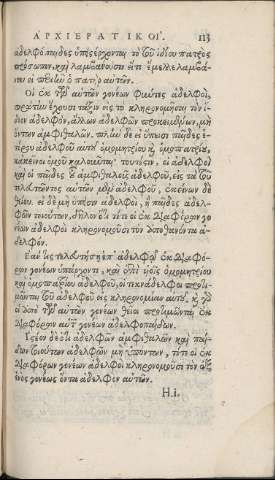 ΑΡΧΙΕΡΑΤΙΚΟΙ. 113
ἀδελφόπαιδες ὑπεξέρχονται τὸ τοῦ ἰδίου πατρὸς
πρόσωπον, καὶ λαμβάνουσι εἴτι ἔμελλε λαμβά-
νειν εἰ περιῆν ὁ πατὴρ αὐτῶν.
Οἱ ἐκ τῶν αὐτῶν γονέων φωύτες ἀδελφοὶ,
πρώτην ἔχουσι τάξιν εἰς τὸ κληρονομῆσαι τὸν ἴ-
διον ἀδελφὸν, ἄλλων ἀδελφῶν προκειμένων, μὴ
ὄντων ἀμφιθαλῶν. πλὴν δὲ εἰ ὕπεισι παῖδες ἑ-
τέρου ἀδελφοῦ αὐτοῦ ὁμομητρίου καὶ ὁμοπατρίου,
κἀκεῖνοι ὁμοῦ καλοῦνται τουτέστιν, οἱ ἀδελφοὶ
καὶ οἱ παῖδες τοῦ ἀμφιθαλοῦς ἀδελφοῦ, εἰς τὰ τοῦ
τελευτῶντος αὐτῶν ἀδελφοῦ, ἐκείνων δὲ
θεῖοι. εἰ δὲ μὴ ὑπῆσιν ἀδελφοὶ, ἢ παῖδες ἀδελ-
φῶν τοιούτων, δῆλον ὅτι τότε οἱ ἐκ διαφόρων γο
νέων ἀδελφοὶ κληρονομοῦσι τὸν ἀποθανόντα ἀ-
δελφόν.
Ἐάν τις τελευτήσῃ ἐπ' ἀδελφοῖς ἐκ διαφό-
ρων γονέων ὑπάρχοντι, καὶ ἐπὶ υἱοῖς ὁμομητρίου
καὶ ὁμοπατρίου ἀδελφοῦ, οἱ τἀκνάδελφοι προτι-
μῶνται τοῦ ἀδελφοῦ εἰς κληρονομίαν αὐτοῦ, καὶ
οἱ ἀπὸ τῶν αὐτῶν γονέων θεῖοι προτιμῶνται ἐκ
διαφόρων αὐτοῦ γονέων ἀδελφοπαίδων.
Ἰστέον δὲ ὅτι ἀδελφῶν ἀμφιθαλῶν καὶ παί-
δων τοιούτων ἀδελφῶν μὴ ὑπόντων, τότε οἱ ἐκ
διαφόρων γονέων ἀδελφοὶ κληρονομοῦσι τὸν ἐξ
ἑνὸς γονέως ὄντα ἀδελφὸν αὐτῶν.
H.i.